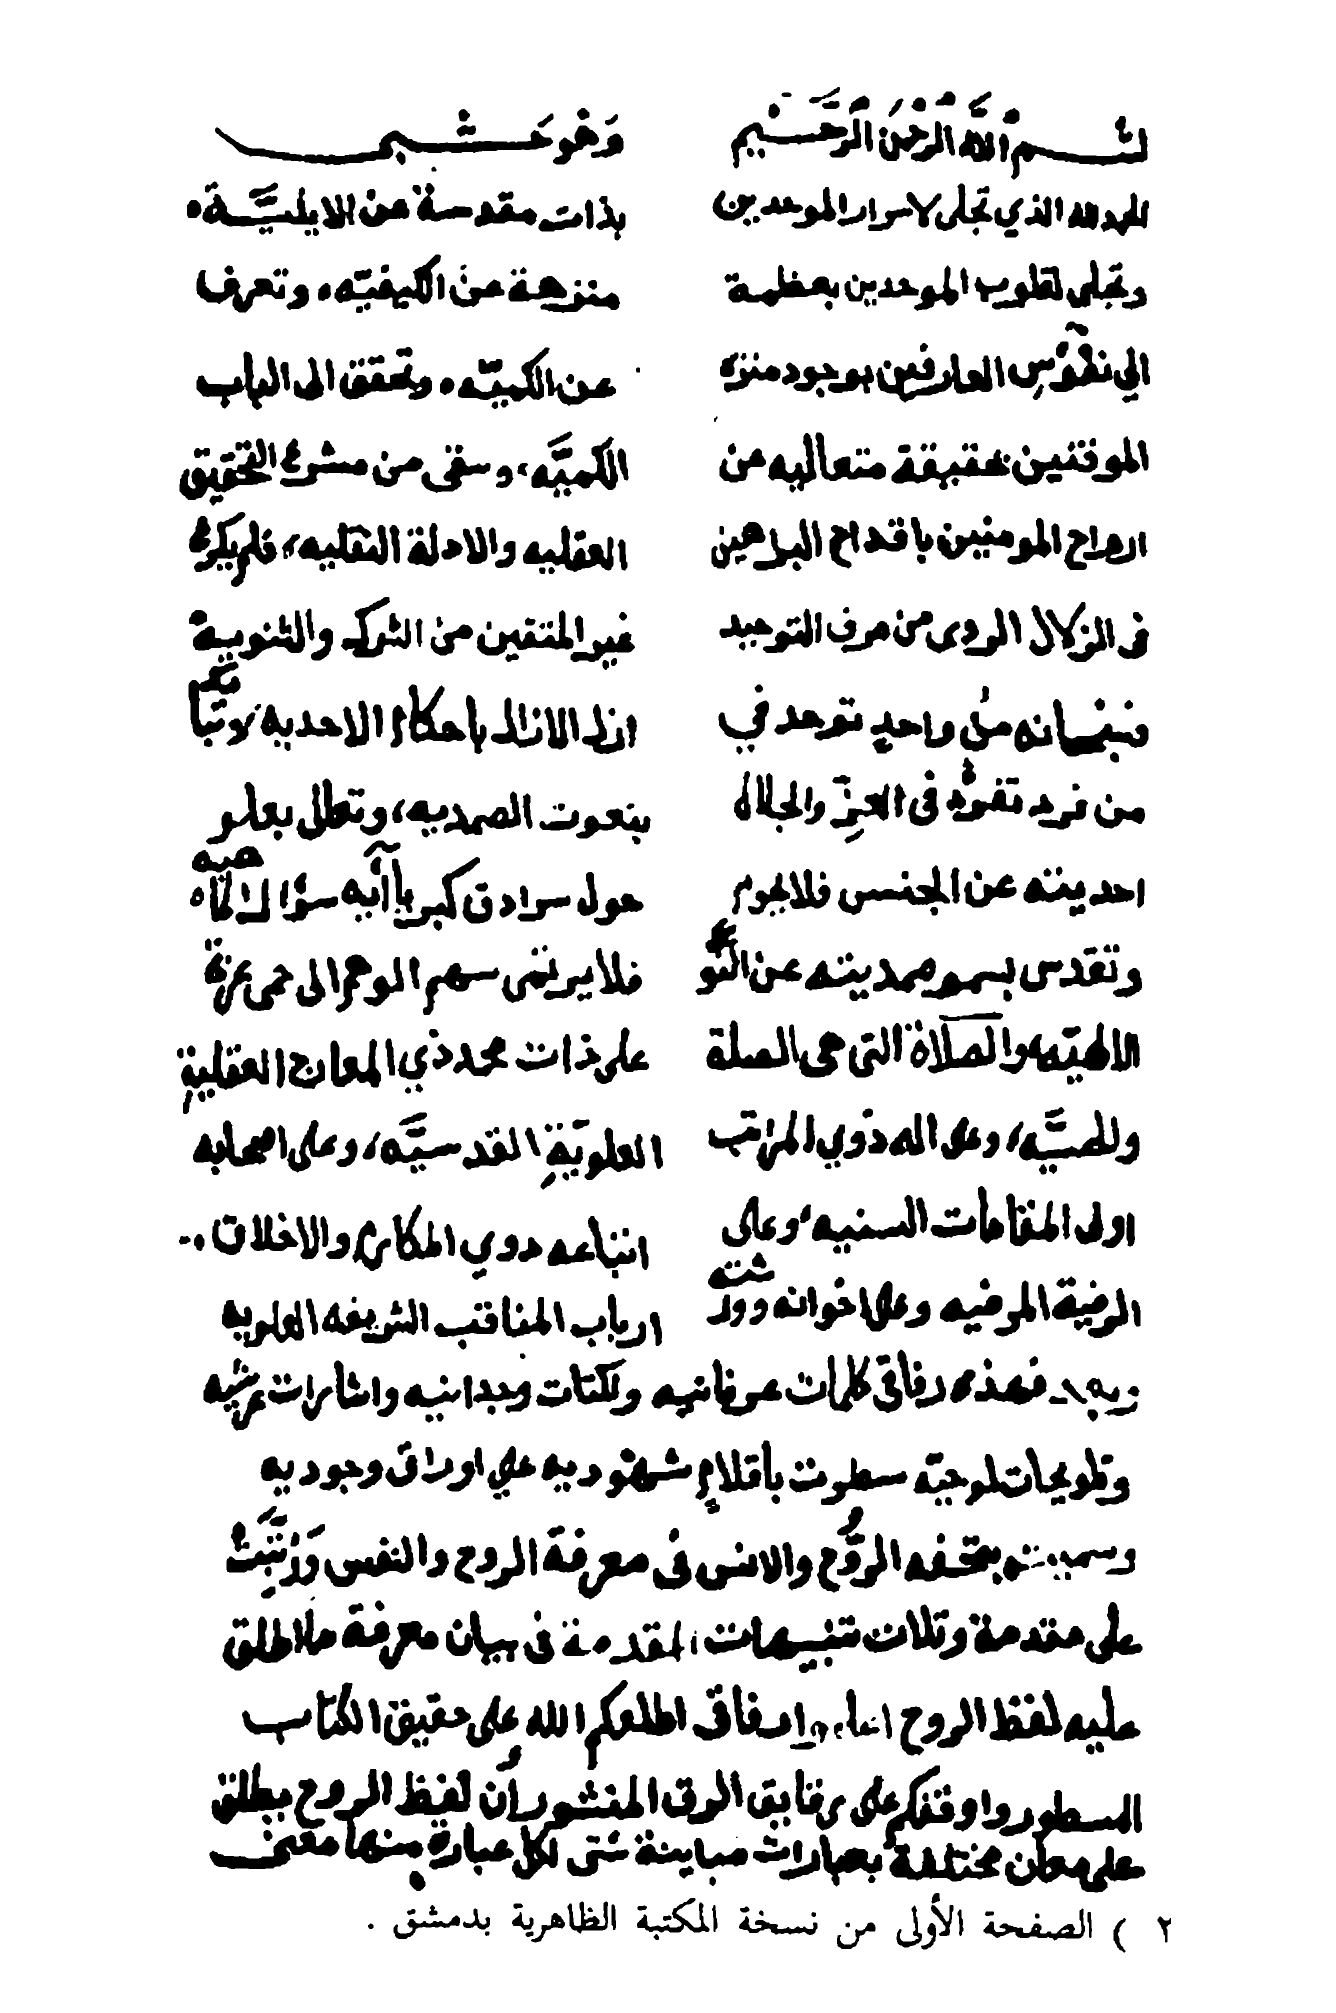 بسم الله الرحمن الرحيم وهو حسبي
الحمد لله الذي تجلى لاسرار الموحدين بذات مقدسة عن الاينيَّة،
وتجلى لقلوب الموحدين بعظمة منزهة عن الكيفيّه، وتعرف
الى نفوس العارفين بوجود منزه عن الكميّه، وتحقق الى الباب
الموقنين بحقيقة متعاليه عن الكميَّه، وسقى من مشرع التحقيق
ارواح المومنين باقداح البراهين العقليه والادلة النقليه، فلم يكرع
فى الزلال الروى من صرف التوحيد غير المتقين من الشرك والثنوية
فسبحانه من واحدٍ توحد في ازل الازال باحكام الاحديه وتبا
من فرد تفرّد فى العزّ والجلال بنعوت الصمديه، وتعالى بعلو
احديته عن الجنس فلا يحوم حول سرادق كبريآآيه
وتقدس بسمو صمديته عن فلا يرتقى سهم الوهم الى حمى عزة
الالهيّه، والصلاة التى هى الصلة على ذات محمد ذي المعارج العقليةِ
وعلى اله ذوي المراتب العلويّةِ القدسيَّه، وعلى اصحابه
اولى المقامات السنيه، وعلى اتباعه ذوي المكارم والاخلاق
الرضية المرضيه وعلى اخوانه وورثته ارباب المناقب الشريفه العلويه
وبعد فهذه دقائق كلمات عرفانيه ونكتات وجدانيه واشارات عرشيه
وتلويحات لوحيّه سطرت باقلامٍ شهوديه على اوراق وجوديه
وسميته بتحفه الرُّوح والانس فى معرفة الروح والنفس وَرُتِّبَتْ
على مقدمة وثلاث تنبيهات المقدمة فى بيان معرفة ما اطلق
عليه لفظ الروح اطلعكم الله على حقيق الكتاب
المسطور واوقفكم على رقايق الرق المنشور أن لفظ الروح يطلق
على معان مختلفة بعبارات مباينة شتى لكل عبارة منها معنى
٢ ) الصفحة الأولى من نسخة المكتبة الظاهرية بدمشق .